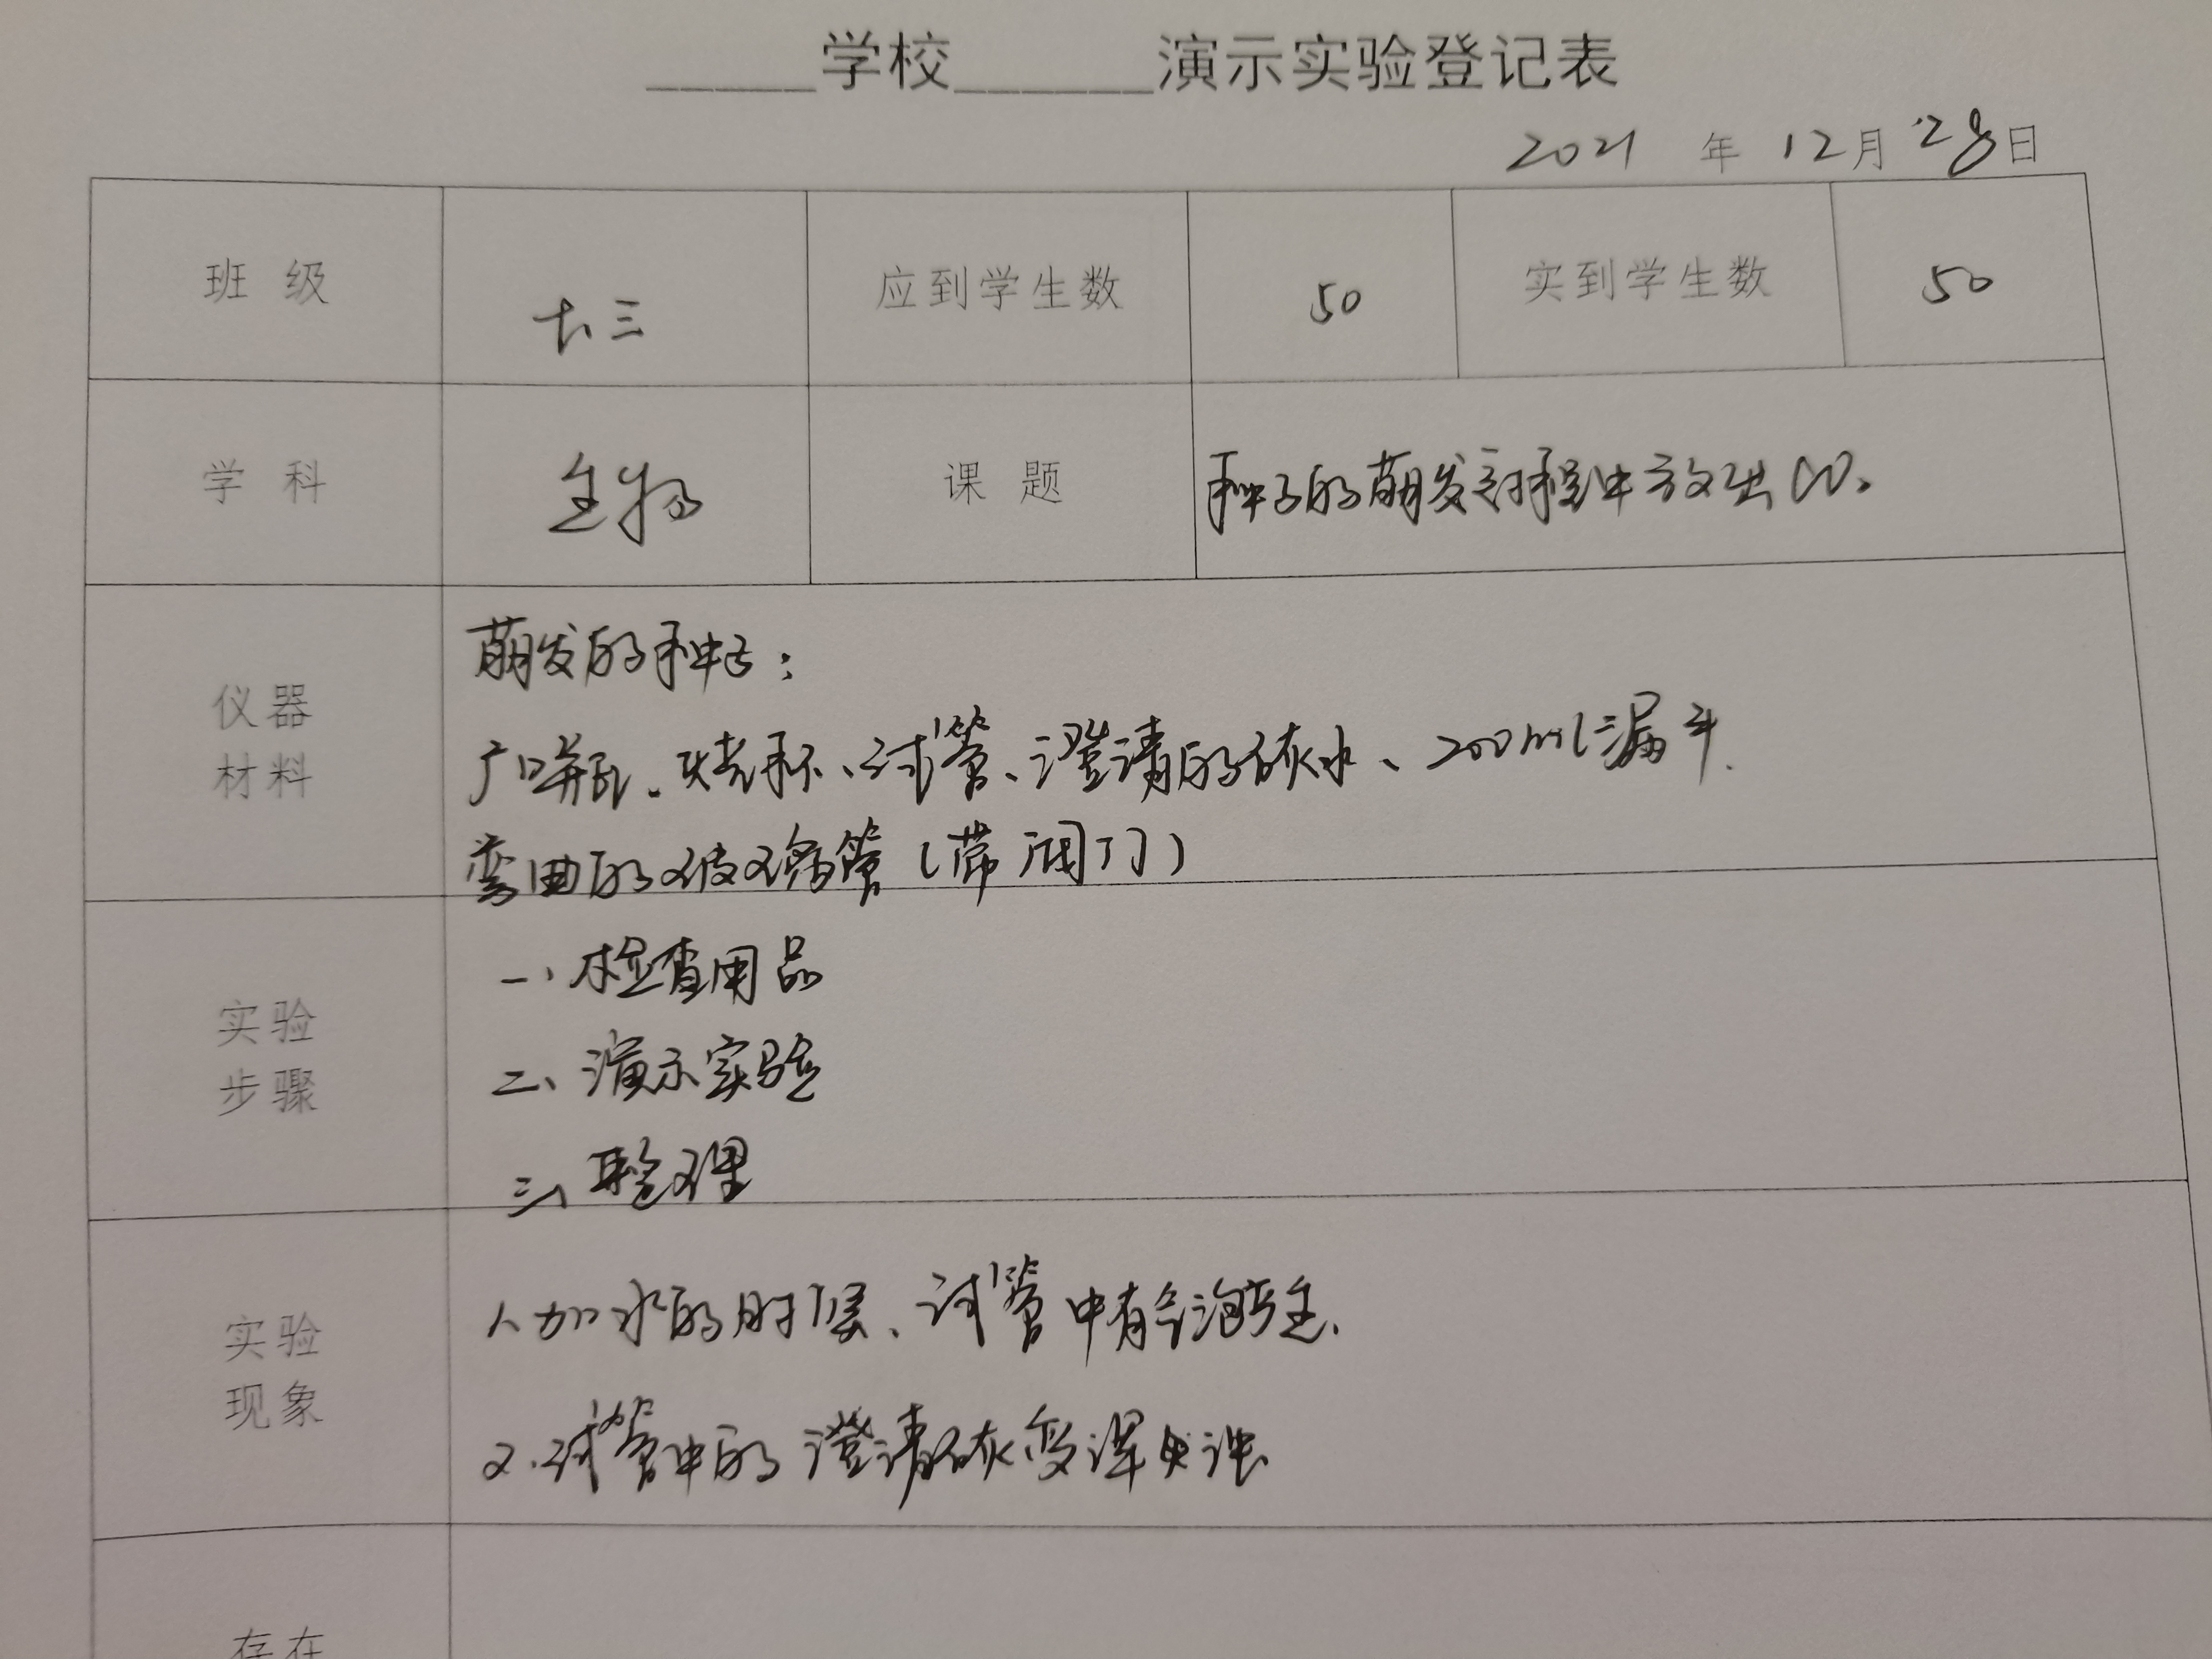 _____学校______演示实验登记表
2021 年 12月 28日
班 级 七、三 应到学生数 50 实到学生数 50
学 科 生物 课 题 种子的萌发过程中放出CO₂
仪器
材料
萌发的种子：
广口瓶、烧杯、试管、澄清的石灰水、200ml漏斗.
弯曲的玻璃管（带阀门）
实验
步骤
一、检查用品
二、演示实验
三、整理
实验
现象
1、加水的时候、试管中有气泡产生.
2、试管中的澄清石灰变浑浊
存在